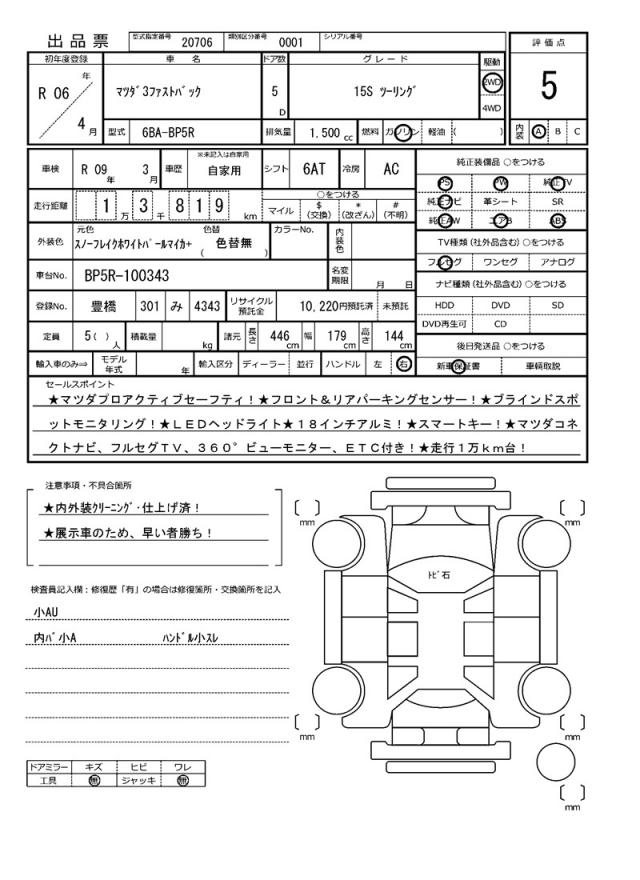 出品票 型式指定番号 20706 類別区分番号 0001 シリアル番号
初年度登録 車名 ドア数 グレード 駆動 評価点
R 06 年 4 月 マツダ3ファストバック 5 D 15S ツーリング 2WD 4WD 5
型式 6BA-BP5R 排気量 1.500 cc 燃料 ガソリン 軽油 ( ) 内装 A B C
車検 R 09 年 3 月 車歴 ※未記入は自家用 自家用 シフト 6AT 冷房 AC 純正装備品 ○をつける
PS PW 純正TV
走行距離 1 万 3 千 8 1 9 km ○をつける 純正ナビ 革シート SR
マイル $ (交換) * (改ざん) # (不明) 純正AW エアB ABS
外装色 元色 スノーフレイクホワイトパールマイカ+ 色替 ( 色替無 ) カラーNo. 内装色 TV種類 (社外品含む) ○をつける
フルセグ ワンセグ アナログ
車台No. BP5R-100343 名変期限 月 日 ナビ種類 (社外品含む) ○をつける
登録No. 豊橋 301 み 4343 リサイクル預託金 10,220円預託済 未預託 HDD DVD SD
DVD再生可 CD
定員 5 ( ) 人 積載量 kg 諸元 長さ 446 cm 幅 179 cm 高さ 144 cm 後日発送品 ○をつける
輸入車のみ⇒ モデル年式 年 輸入区分 ディーラー 並行 ハンドル 左 右 新車保証書 車輌取説
セールスポイント
★マツダプロアクティブセーフティ!★フロント&リアパーキングセンサー!★ブラインドスポ
ットモニタリング!★LEDヘッドライト★18インチアルミ!★スマートキー!★マツダコネ
クトナビ、フルセグTV、360°ビューモニター、ETC付き!★走行1万km台!
注意事項・不具合箇所
★内外装クリーニング・仕上げ済!
★展示車のため、早い者勝ち!
検査員記入欄:修復歴「有」の場合は修復箇所・交換箇所を記入
小AU
内バ小A ハンドル小スレ
ドアミラー キズ ヒビ ワレ
工具 無 ジャッキ 無
mm mm
トビ石
mm mm
mm